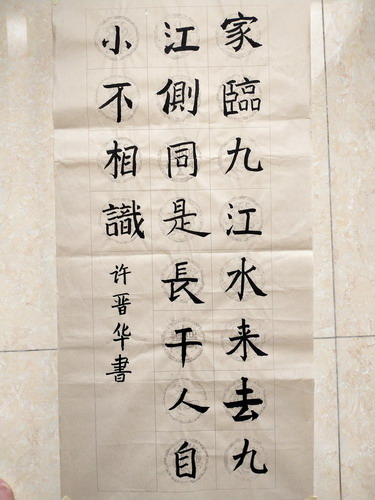 家臨九江水来去九
江側同是長干人自
小不相識
许晋华書